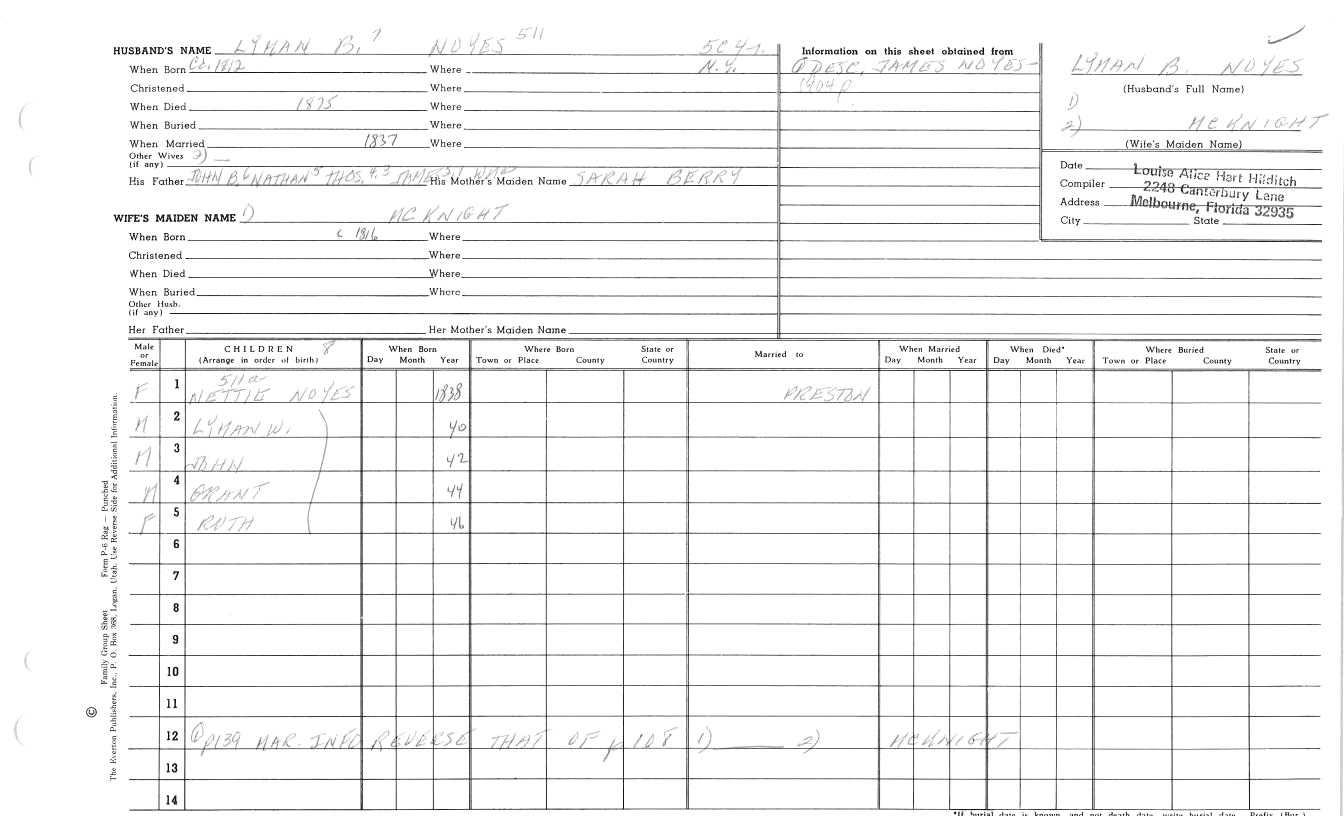 HUSBAND'S NAME LYMAN B.7 NOYES 511
When Born Ca. 1812 Where N.Y.
Christened Where
When Died 1875 Where
When Buried Where
When Married 1837 Where
Other Wives 2)
(if any)
His Father JOHN B.6 NATHAN5 THOS.4,3 JAMES His Mother's Maiden Name SARAH BERRY
WIFE'S MAIDEN NAME 1) MCKNIGHT
When Born c 1816 Where
Christened Where
When Died Where
When Buried Where
Other Husb.
(if any)
Her Father Her Mother's Maiden Name
Information on this sheet obtained from
① DESC. JAMES NOYES-
1904 p.
LYMAN B. NOYES
(Husband's Full Name)
1)
2) MCKNIGHT
(Wife's Maiden Name)
Date
Compiler
Address
City State
Louise Alice Hart Hilditch
2248 Canterbury Lane
Melbourne, Florida 32935
Male or Female CHILDREN 8 (Arrange in order of birth) When Born Day Month Year Where Born Town or Place County State or Country Married to When Married Day Month Year When Died* Day Month Year Where Buried Town or Place County State or Country
511a
F 1 NETTIE NOYES 1838 PRESTON
M 2 LYMAN W. 40
M 3 JOHN 42
M 4 GRANT 44
F 5 RUTH 46
6
7
8
9
10
11
12 ① p139 MAR. INFO REVERSE THAT OF p 108 1) 2) MCKNIGHT
13
14
© Family Group Sheet Form P-6 Rag — Punched
The Everton Publishers, Inc., P. O. Box 368, Logan, Utah. Use Reverse Side for Additional Information.
*If burial date is known and not death date, write burial date